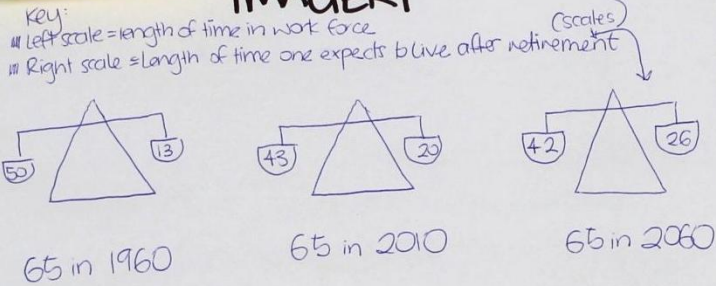 IMAGERY
Key:
(scales)
Left scale = length of time in work force
Right scale = Length of time one expects to live after retirement
50 13
43 20
42 26
65 in 1960
65 in 2010
65 in 2060